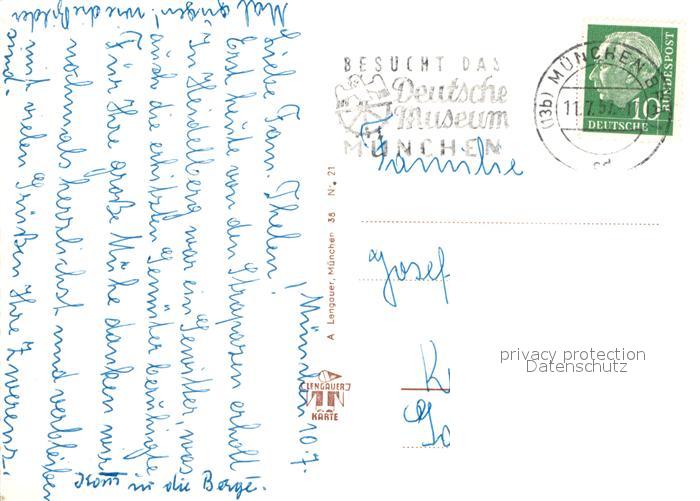 München 10.7.
Liebe Fam. Thelen!
Erst heute von den Strapazen erholt.
In Heidelberg war ein Gewitter, was
auch die erhitzten Gemüter beruhigte
Für Ihre große Mühe danken wir
nochmals herzlichst und verbleiben
mit vielen Grüßen Ihre
sind.
Mal zeigen! wie die Bilder
in die Berge.
BESUCHT DAS
Deutsche
Museum
MÜNCHEN
(13b) MÜNCHEN
11.7.57
10
DEUTSCHE
BUNDESPOST
Familie
Josef
K
A. Lengauer, München 38 Nr. 21
LENGAUER
KARTE
privacy protection
Datenschutz